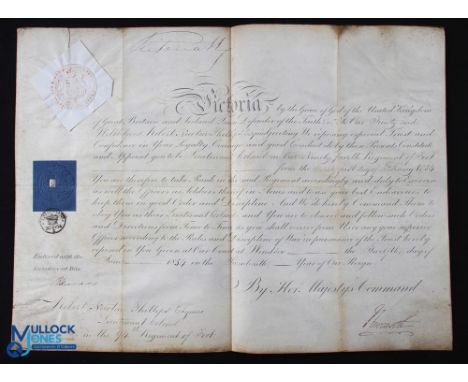 Victoria R
Victoria, by the Grace of God of the United Kingdom
of Great Britain and Ireland Queen Defender of the Faith &c To Our Trusty and
Welbeloved Robert Newton Phillips Esquire Greeting We reposing especial Trust and
Confidence in Your Loyalty Courage and good Conduct do by these Presents Constitute
and Appoint you to be Lieutenant Colonel in Our Ninety fourth Regiment of Foot
from the
You are therefore to take Rank in the said Regiment accordingly and duly to Exercise
as well the Officers as Soldiers thereof in Arms and to use your best Endeavours to
keep them in good Order and Discipline And We do hereby Command Them to
Obey You as their Lieutenant Colonel and You are to observe and follow such Orders
and Directions from Time to Time as you shall receive from Us or any your superior
Officer according to the Rules and Discipline of War in pursuance of the Trust hereby
reposed in You Given at Our Court at Windsor the day of
June 1854 in the Seventeenth Year of Our Reign
Entered with the
Secretary at War
By Her Majesty's Command
Robert Newton Phillips Esquire
Lieutenant Colonel
in the 94th Regiment of Foot
MULLOCK
JONES